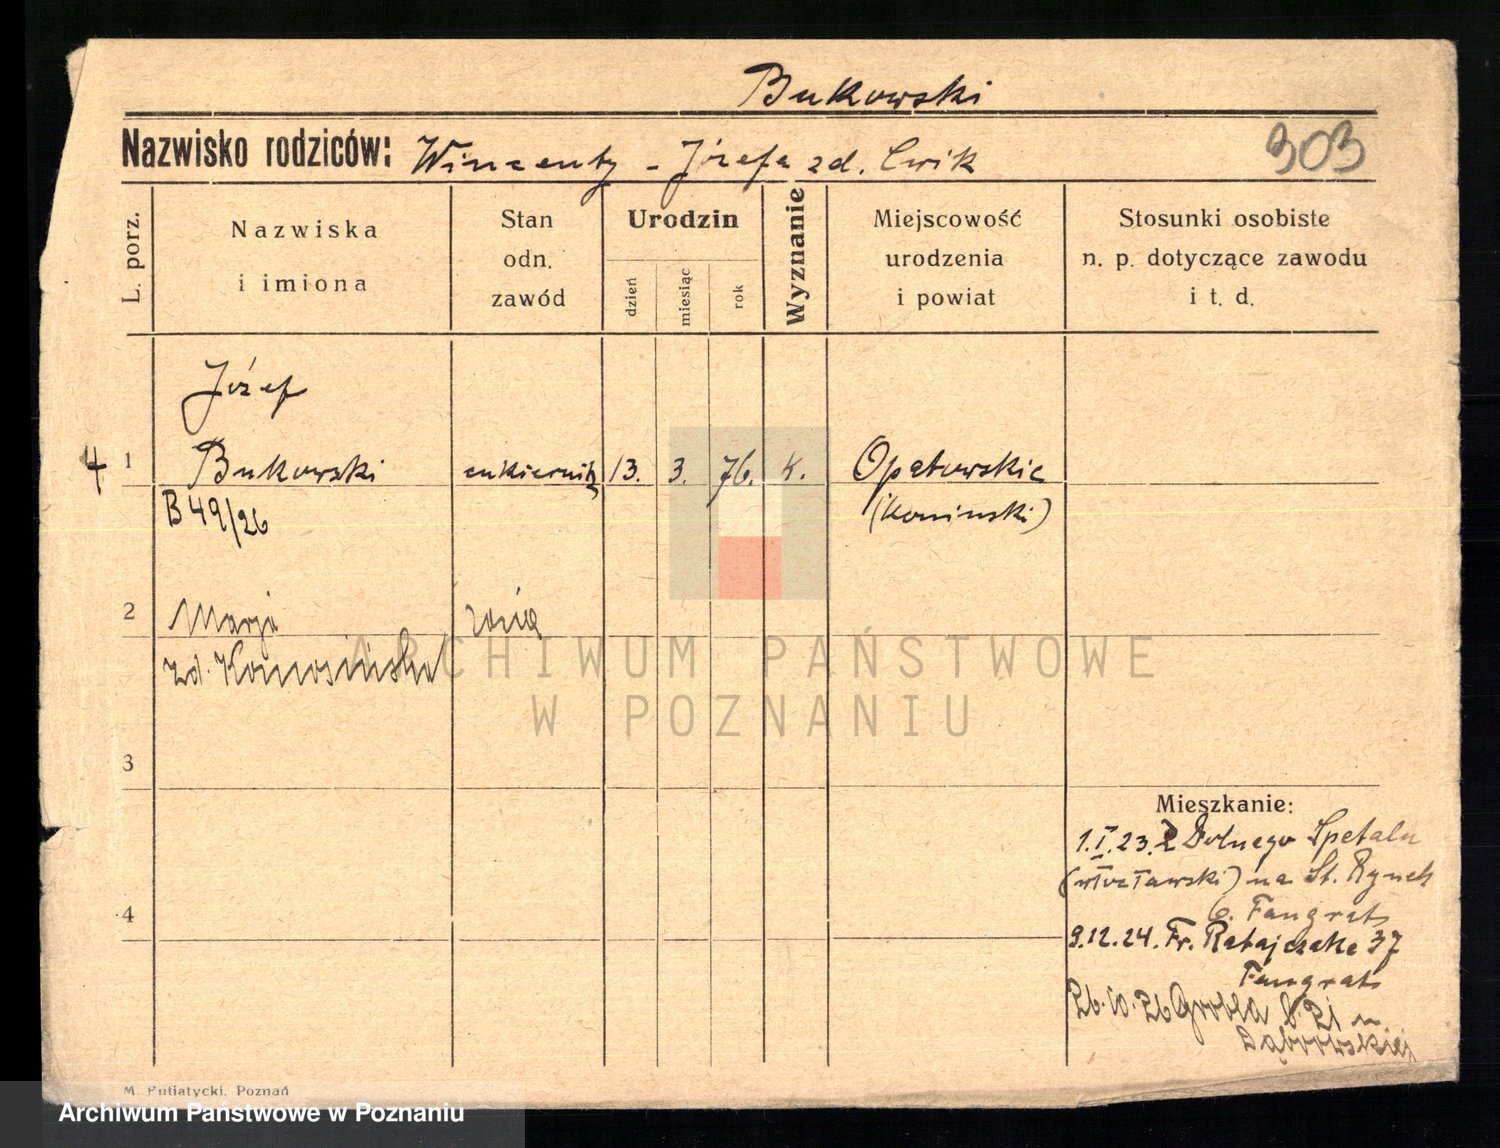 Bukowski
Nazwisko rodziców: Wincenty - Józefa zd. Cwik
303
L. porz.
Nazwiska
i imiona
Stan
odn.
zawód
Urodzin
dzień
miesiąc
rok
Wyznanie
Miejscowość
urodzenia
i powiat
Stosunki osobiste
n. p. dotyczące zawodu
i t. d.
Józef
4 1 Bukowski cukiernik 13. 3. 76. k. Opatowskie
B 49/26 (koninski)
2 Marja żona
zd. Komosińska
ARCHIWUM PAŃSTWOWE
W POZNANIU
3
Mieszkanie:
1.I.23. Z Dolnego Szpetalu
(włocławski) na St. Rynek
4 6. Fangrat
9.12.24. Fr. Ratajczaka 37
Fangrat
26.10.26 Grobla 21 u
Dąbrowskiej
M. Putiatycki, Poznań
Archiwum Państwowe w Poznaniu